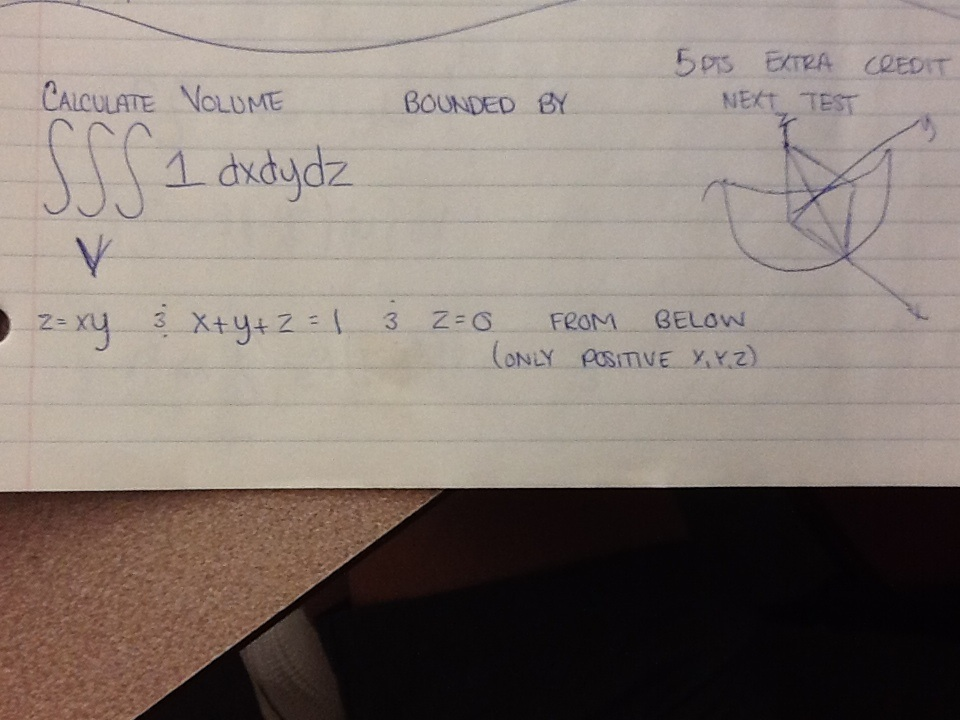 5 PTS EXTRA CREDIT
CALCULATE VOLUME BOUNDED BY NEXT TEST
∫∫∫ 1 dxdydz
V
z
y
x
z=xy & x+y+z=1 & z=0 FROM BELOW
(ONLY POSITIVE X,Y,Z)